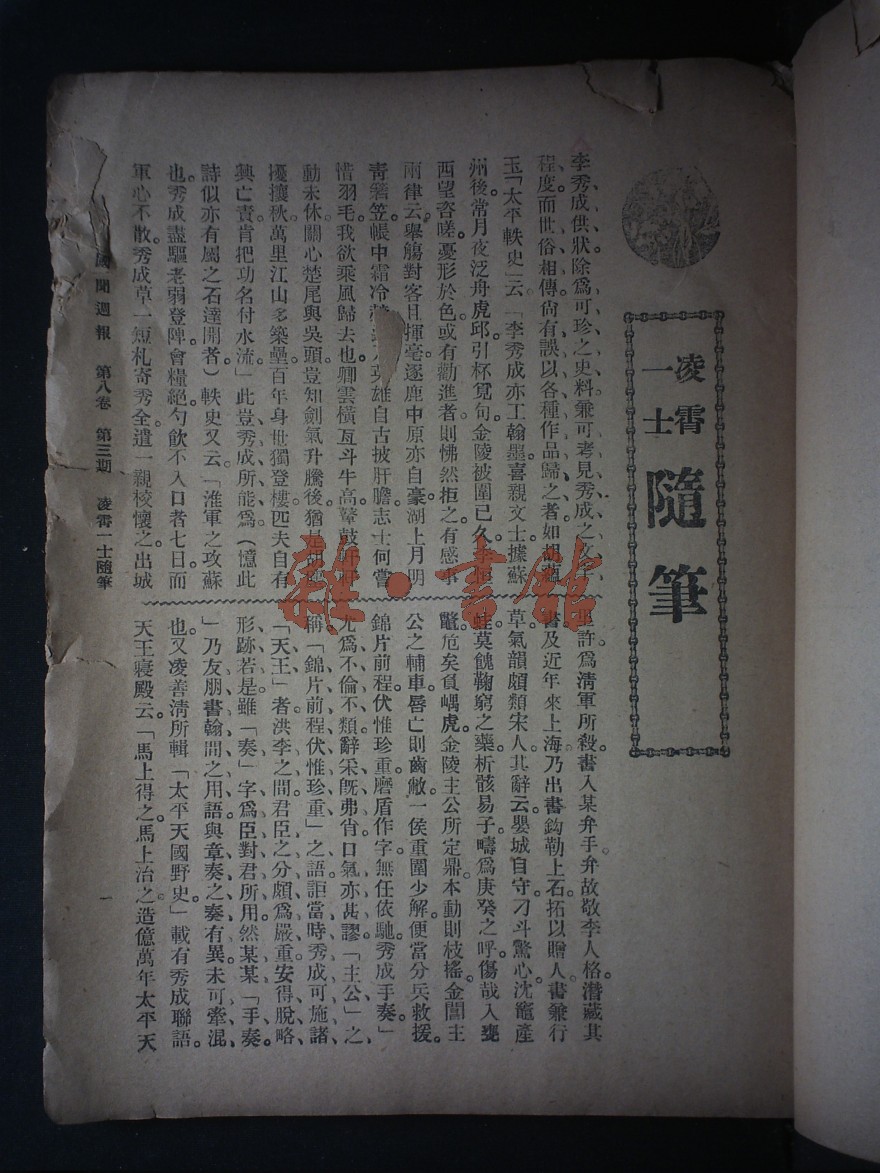 凌霄
一士
隨筆
李秀成供狀除爲可珍之史料兼可考見秀成之文字
程度而世俗相傳尙有誤以各種作品歸之者如
玉「太平軼史」云「李秀成亦工翰墨喜親文士據蘇
州後常月夜泛舟虎邱引杯覓句金陵被圍已久李恒
西望咨嗟憂形於色或有勸進者則怫然拒之有感事
兩律云舉觴對客且揮毫逐鹿中原亦自豪湖上月明
靑箬笠帳中霜冷 英雄自古披肝膽志士何嘗
惜羽毛我欲乘風歸去也卿雲橫亙斗牛高鼙鼓
動未休關心楚尾與吳頭豈知劍氣升騰後猶是胡
擾攘秋萬里江山多築壘百年身世獨登樓匹夫自有
興亡責肯把功名付水流」此豈秀成所能爲(憶此
詩似亦有屬之石達開者)軼史又云「淮軍之攻蘇
也秀成盡驅老弱登陴會糧絕勺飮不入口者七日而
軍心不散秀成草一短札寄秀全遣一親校懷之出城
許爲淸軍所殺書入某弁手弁故敬李人格潛藏其
書及近年來上海乃出書鈎勒上石拓以贈人書兼行
草氣韻頗類宋人其辭云嬰城自守刁斗驚心沈竈產
蛙莫餽鞠窮之藥析骸易子疇爲庚癸之呼傷哉入甕
鼈危矣負嵎虎金陵主公所定鼎本動則枝搖金閶主
公之輔車唇亡則齒敝一俟重圍少解便當分兵救援
錦片前程伏惟珍重磨盾作字無任依馳秀成手奏」
尤爲不倫不類辭采旣弗肖口氣亦甚謬「主公」之
稱「錦片前程伏惟珍重」之語詎當時秀成可施諸
「天王」者洪李之間君臣之分頗爲嚴重安得脫略
形跡若是雖「奏」字爲臣對君所用然某某「手奏
」乃友朋書翰間之用語與章奏之奏有異未可牽混
也又凌善淸所輯「太平天國野史」載有秀成聯語
天王寢殿云「馬上得之馬上治之造億萬年太平天
國聞週報 第八卷 第三期 凌霄一士隨筆
一
雜·書館